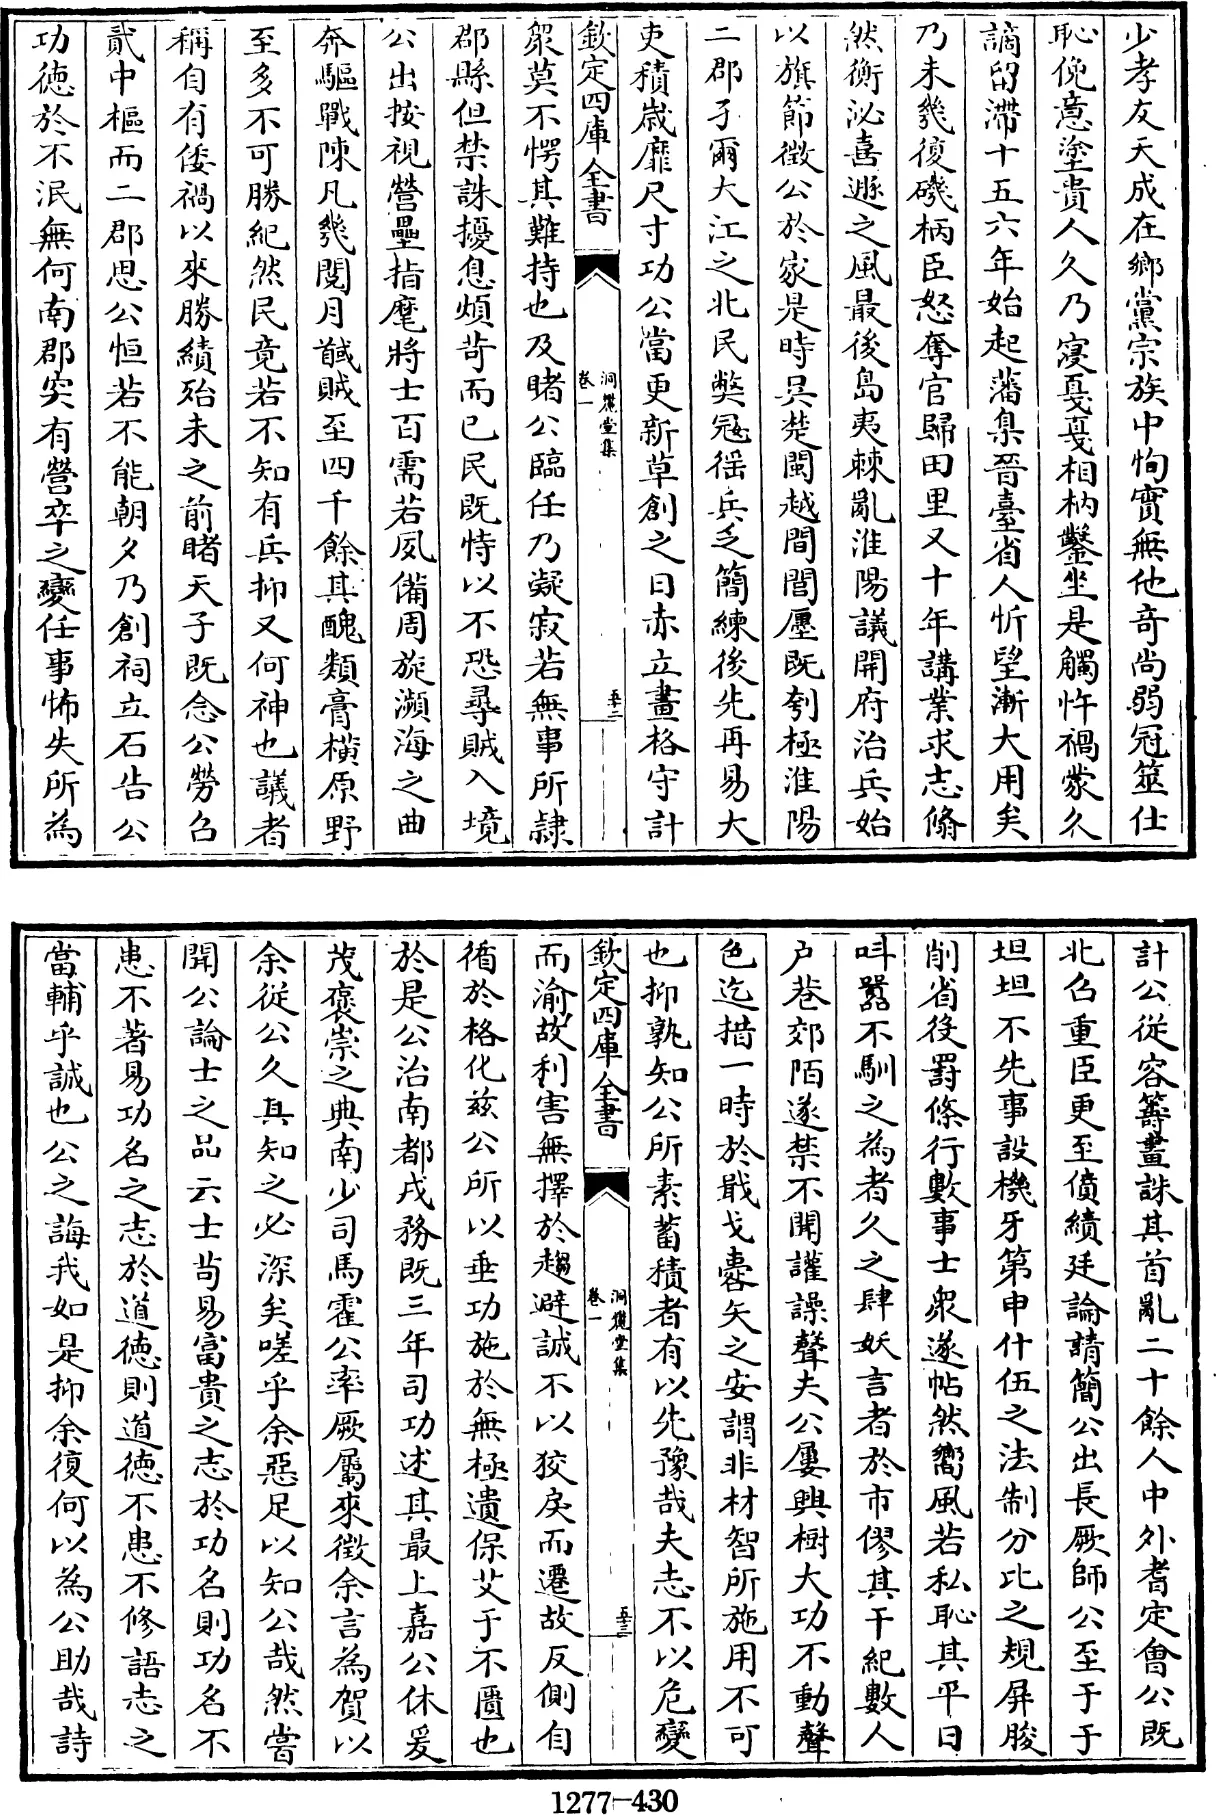 少孝友天成在鄉黨宗族中恂實無他奇尚弱冠筮仕
恥俛意塗貴人久乃寖戞戞相枘鑿坐是觸忤禍蒙久
謫留滯十五六年始起藩臬晉臺省人忻望漸大用矣
乃未幾復磯柄臣怒奪官歸田里又十年講業求志翛
然衡泌喜遯之風最後島夷棘亂淮陽議開府治兵始
以旗節徵公於家是時吳楚閩越間閭廛既刳極淮陽
二郡孑爾大江之北民獘冦徭兵乏簡練後先再易大
吏積嵗靡尺寸功公當更新草創之日赤立畫格守計
欽定四庫全書
洞麓堂集
卷一
五十二
衆莫不愕其難持也及睹公臨任乃凝寂若無事所隷
郡縣但禁誅擾息煩苛而已民既恃以不恐尋賊入境
公出按視營壘指麾將士百需若夙備周旋瀕海之曲
奔驅戰陳凡幾閱月馘賊至四千餘其醜類膏橫原野
至多不可勝紀然民竟若不知有兵抑又何神也議者
稱自有倭禍以來勝績殆未之前睹天子既念公勞召
貳中樞而二郡思公恒若不能朝夕乃創祠立石告公
功德於不泯無何南郡突有營卒之變任事怖失所為
計公從容籌畫誅其首亂二十餘人中外耆定會公既
北召重臣更至僨績廷論請簡公出長厥師公至于于
坦坦不先事設機牙第申什伍之法制分比之規屏朘
削省役罸條行數事士衆遂帖然嚮風若私恥其平日
呌嚣不馴之為者久之肆妖言者於市僇其干紀數人
户巷郊陌遂禁不聞讙譟聲夫公屢興樹大功不動聲
色迄措一時於戢戈櫜矢之安謂非材智所施用不可
也抑孰知公所素蓄積者有以先豫哉夫志不以危變
欽定四庫全書
洞麓堂集
卷一
五十三
而渝故利害無擇於趨避誠不以狡戾而遷故反側自
循於格化兹公所以垂功施於無極遺保艾于不匱也
於是公治南都戎務既三年司功述其最上嘉公休爰
茂褒崇之典南少司馬霍公率厥屬來徵余言為賀以
余從公久且知之必深矣嗟乎余惡足以知公哉然嘗
聞公論士之品云士茍易富貴之志於功名則功名不
患不著易功名之志於道德則道德不患不修語志之
當輔乎誠也公之誨我如是抑余復何以為公助哉詩
1277-430